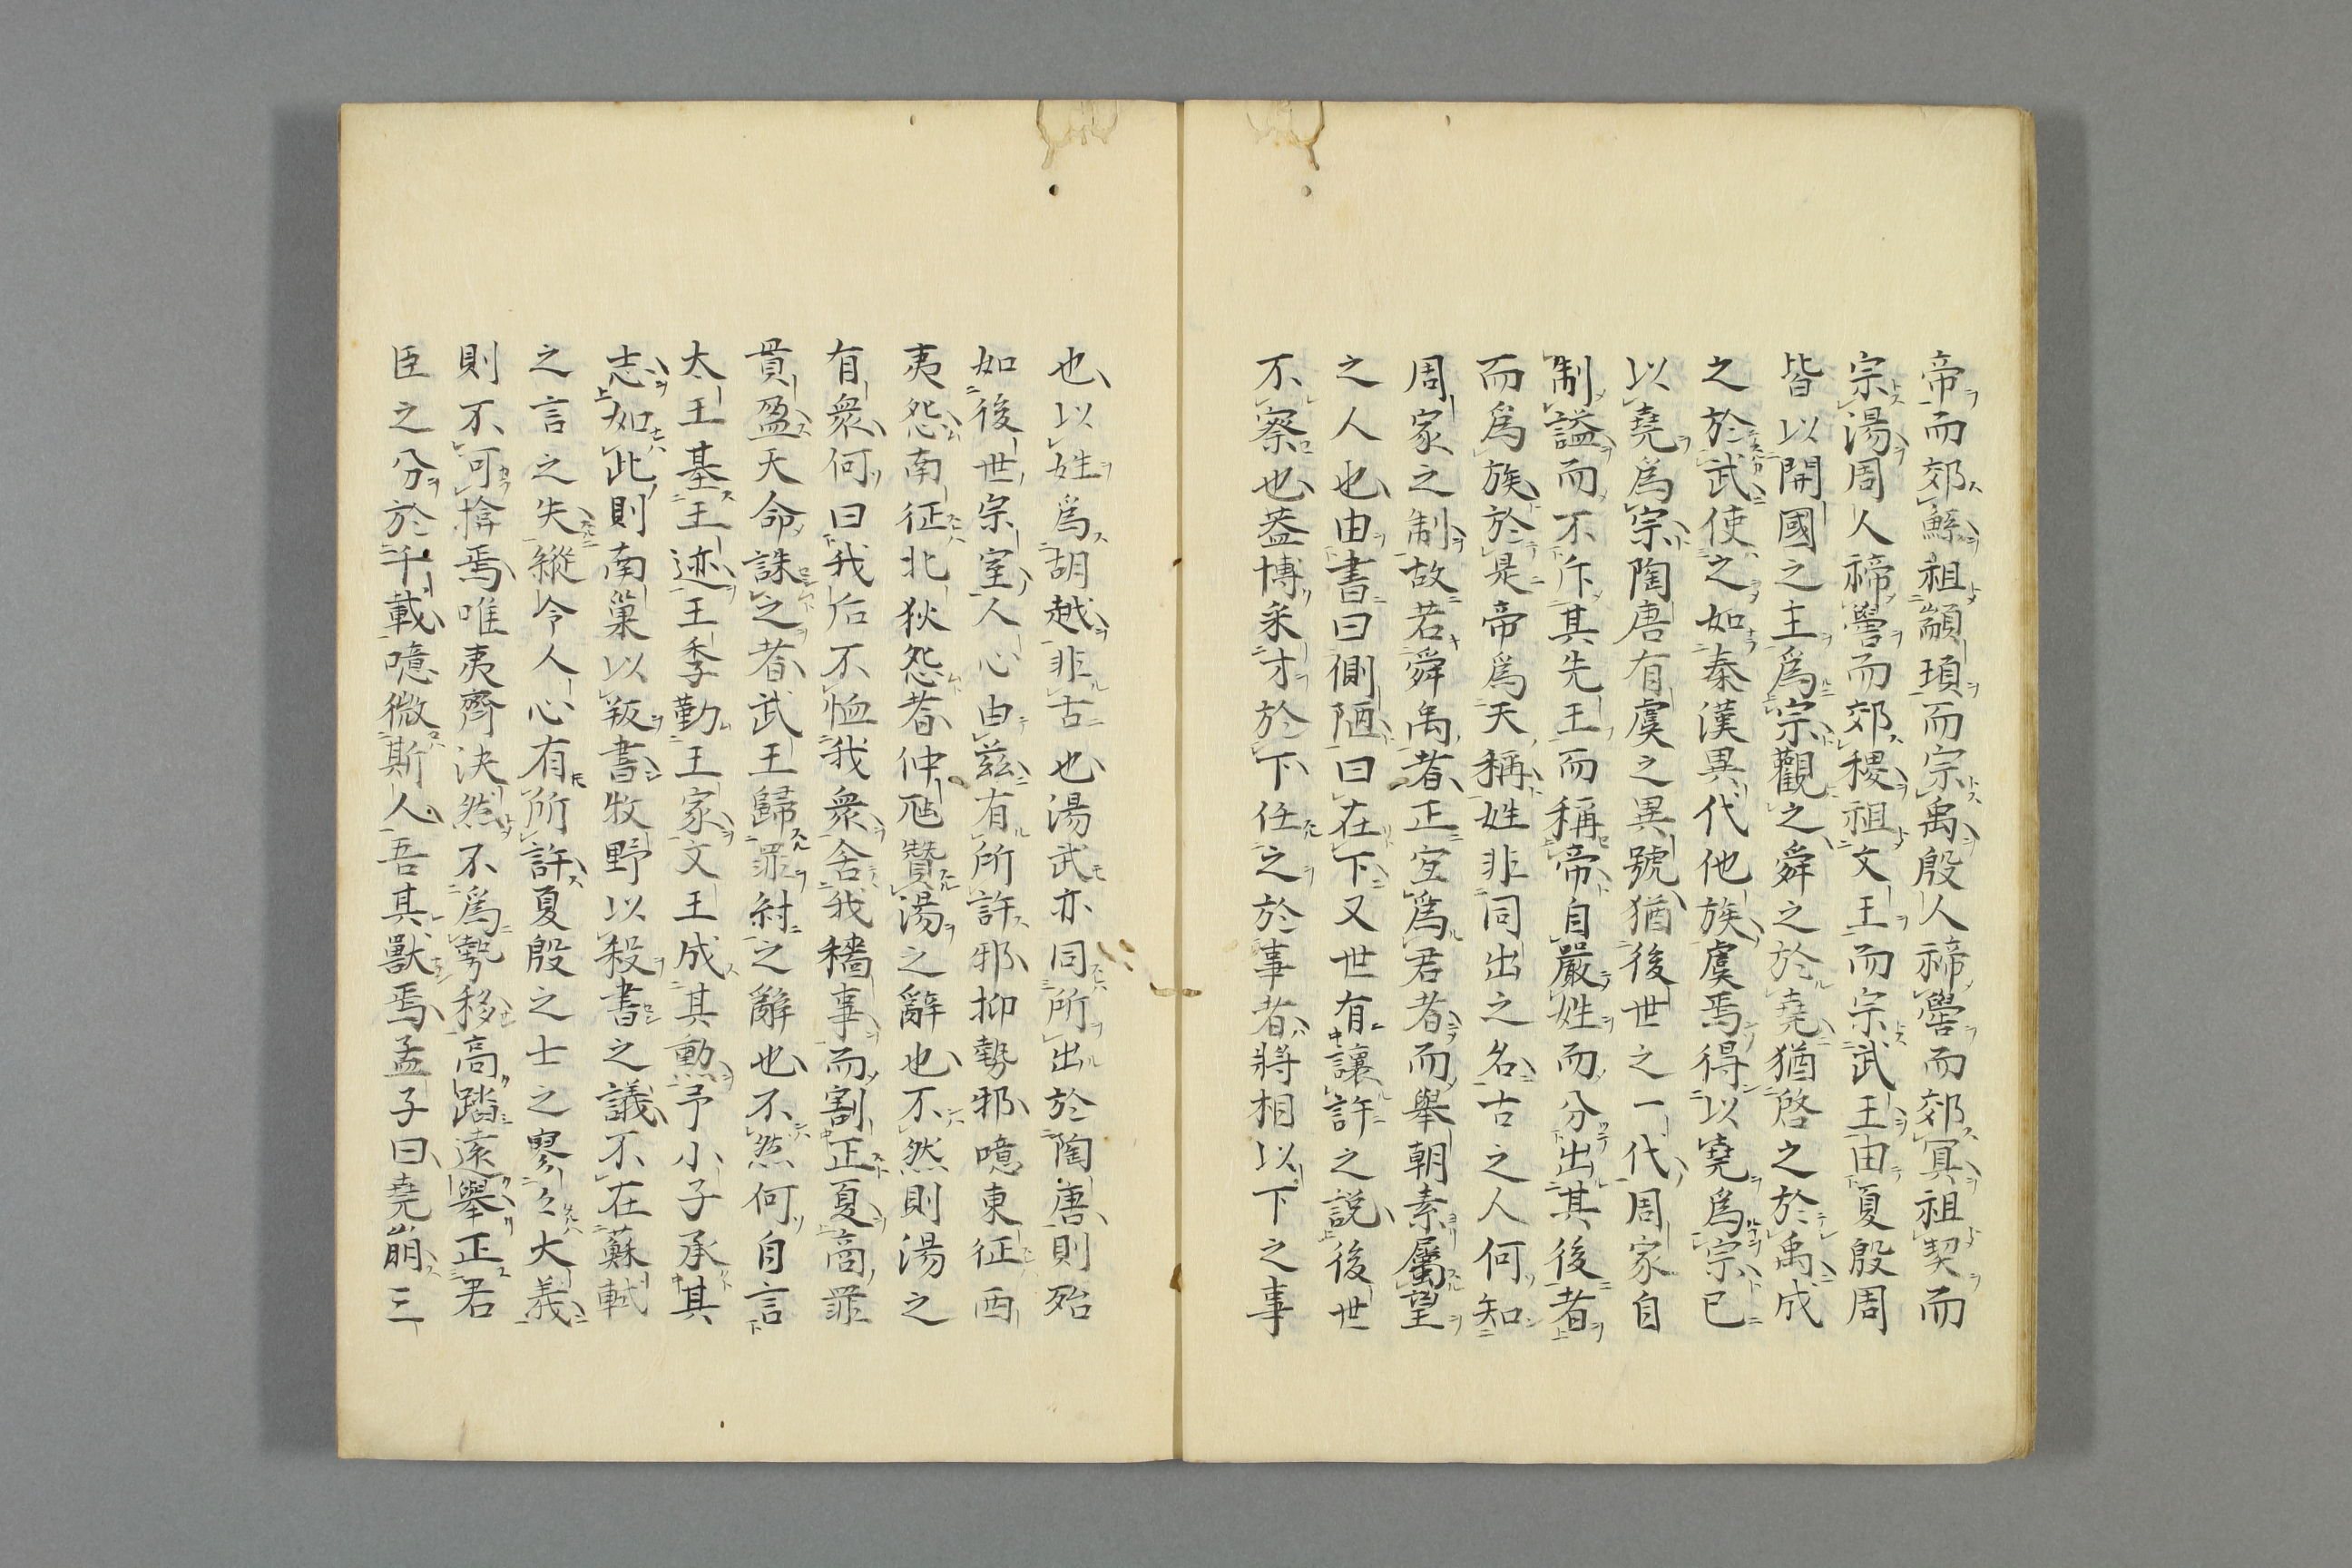 帝而郊鯀祖顓頊而宗禹殷人禘嚳而郊冥祖契而
宗湯周人禘嚳而郊稷祖文王而宗武王由夏殷周
皆以開國之主爲宗觀之舜之於堯猶啓之於禹成
之於武使之如秦漢異代他族虞焉得以堯爲宗已
以堯爲宗陶唐有虞之異號猶後世之一代周家自
制謚而不斥其先王而稱帝自嚴姓而分出其後者
而爲族於是帝爲天稱姓非同出之名古之人何知
周家之制故若舜禹者正宜爲君者而舉朝素屬望
之人也由書曰側陋曰在下又世有讓許之説後世
不察也蓋博采才於下任之於事者將相以下之事
也以姓爲胡越非古也湯武亦同所出於陶唐則殆
如後世宗室人心由茲有所許邪抑勢邪噫東征西
夷怨南征北狄怨者仲虺贊湯之辭也不然則湯之
有衆何曰我后不恤我衆舍我穡事而割正夏商罪
貫盈天命誅之者武王歸罪紂之辭也不然何自言
太王基王迹王季勤王家文王成其勲予小子承其
志如此則南巢以叛書牧野以殺書之議不在蘇軾
之言之失縱令人心有所許夏殷之士之寥々大義
則不可揜焉唯夷齊決然不爲勢移高踏遠舉正君
臣之分於千載噫微斯人吾其獸焉孟子曰堯崩三